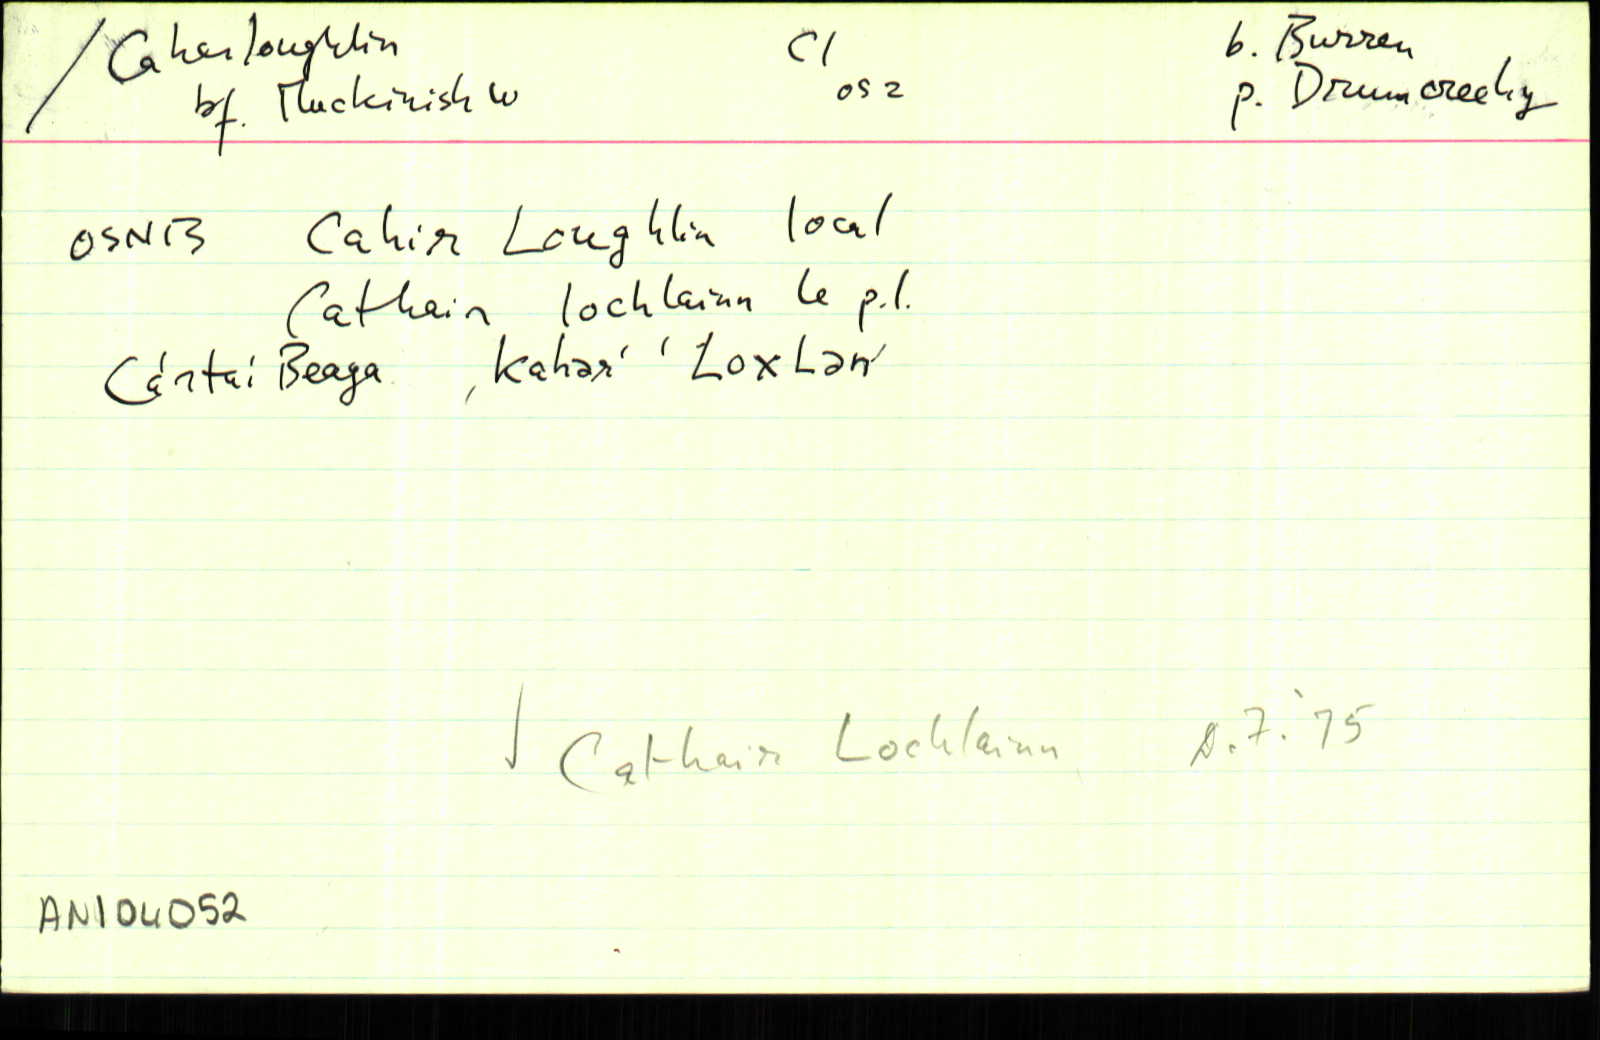 / Caherloughlin Cl b. Burren
bf. Muckinish W OS 2 p. Drumcreehy
OSNB Cahir Loughlin local
Cathair Lochlainn le p.l.
Cártaí Beaga ˌkahər′ ˈLoxLən′
Cathair Lochlainn D.7.'75
AN104052